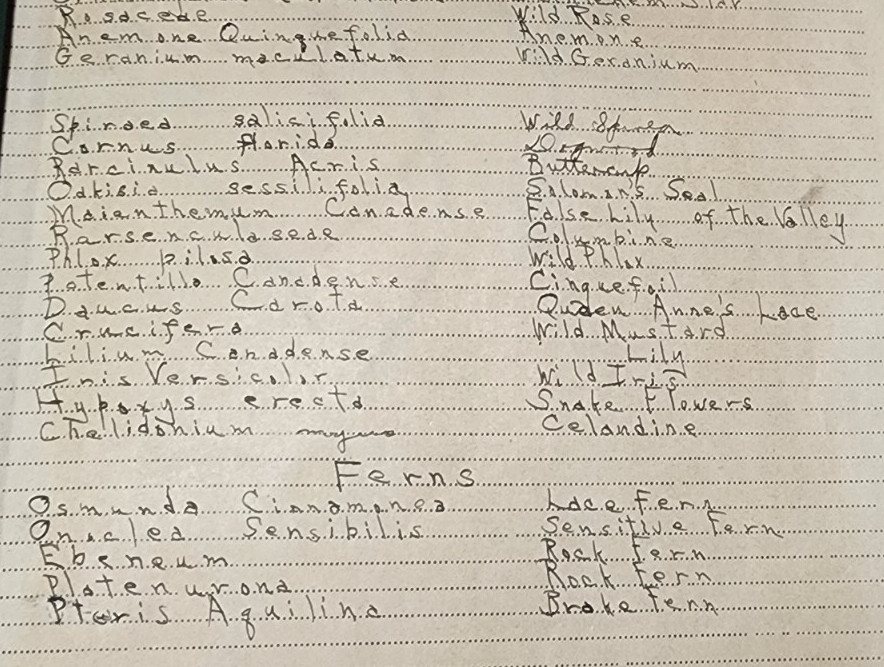 Rosaceae Wild Rose
Anemone Quinquefolia Anemone
Geranium maculatum Wild Geranium
Spiraea salicifolia Wild Spirea
Cornus florida Dogwood
Rarcinulus Acris Buttercup
Oakisia sessilifolia Soloman's Seal
Maienthemum Canadense False Lily of the Valley
Rarsenculaseae Columbine
Phlox pilosa Wild Phlox
Potentilla Canadense Cinquefoil
Daucus Carota Queen Anne's Lace
Crucifera Wild Mustard
Lilium Canadense Lily
Iris Versicolor Wild Iris
Hypoxys erecta Snake Flowers
Chelidonium Celandine
Ferns
Osmunda Cinnamonea Lace fern
Onoclea Sensibilis Sensitive Fern
Ebeneum Rock fern
Platenurona Rock fern
Pteris Aquilina Brake Fern